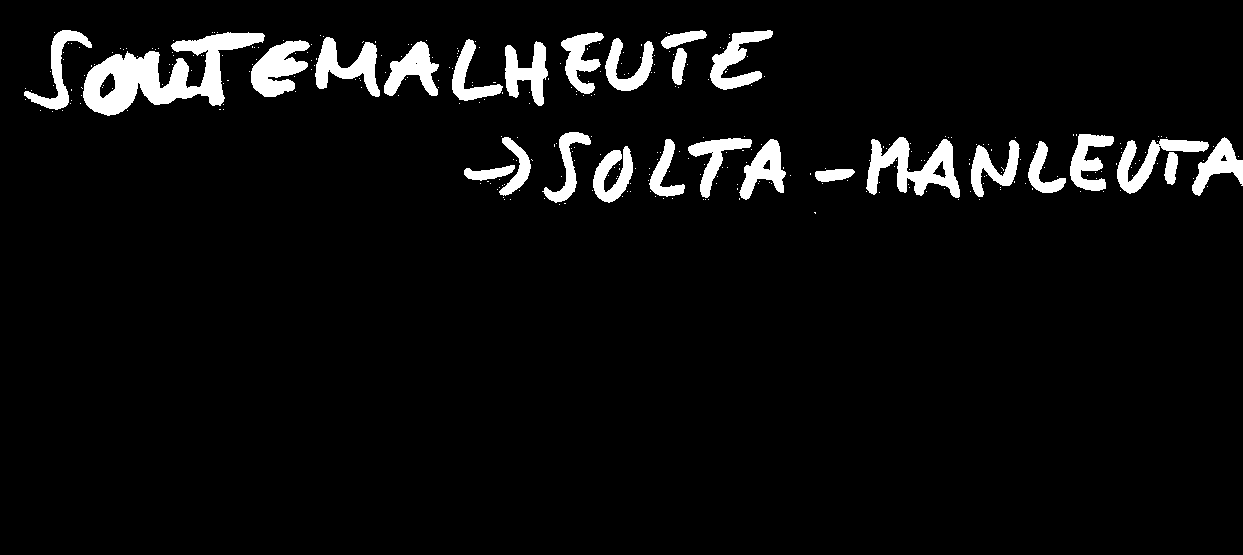 SOUTEMALHEUTE
→ SOLTA-MANLEUTA